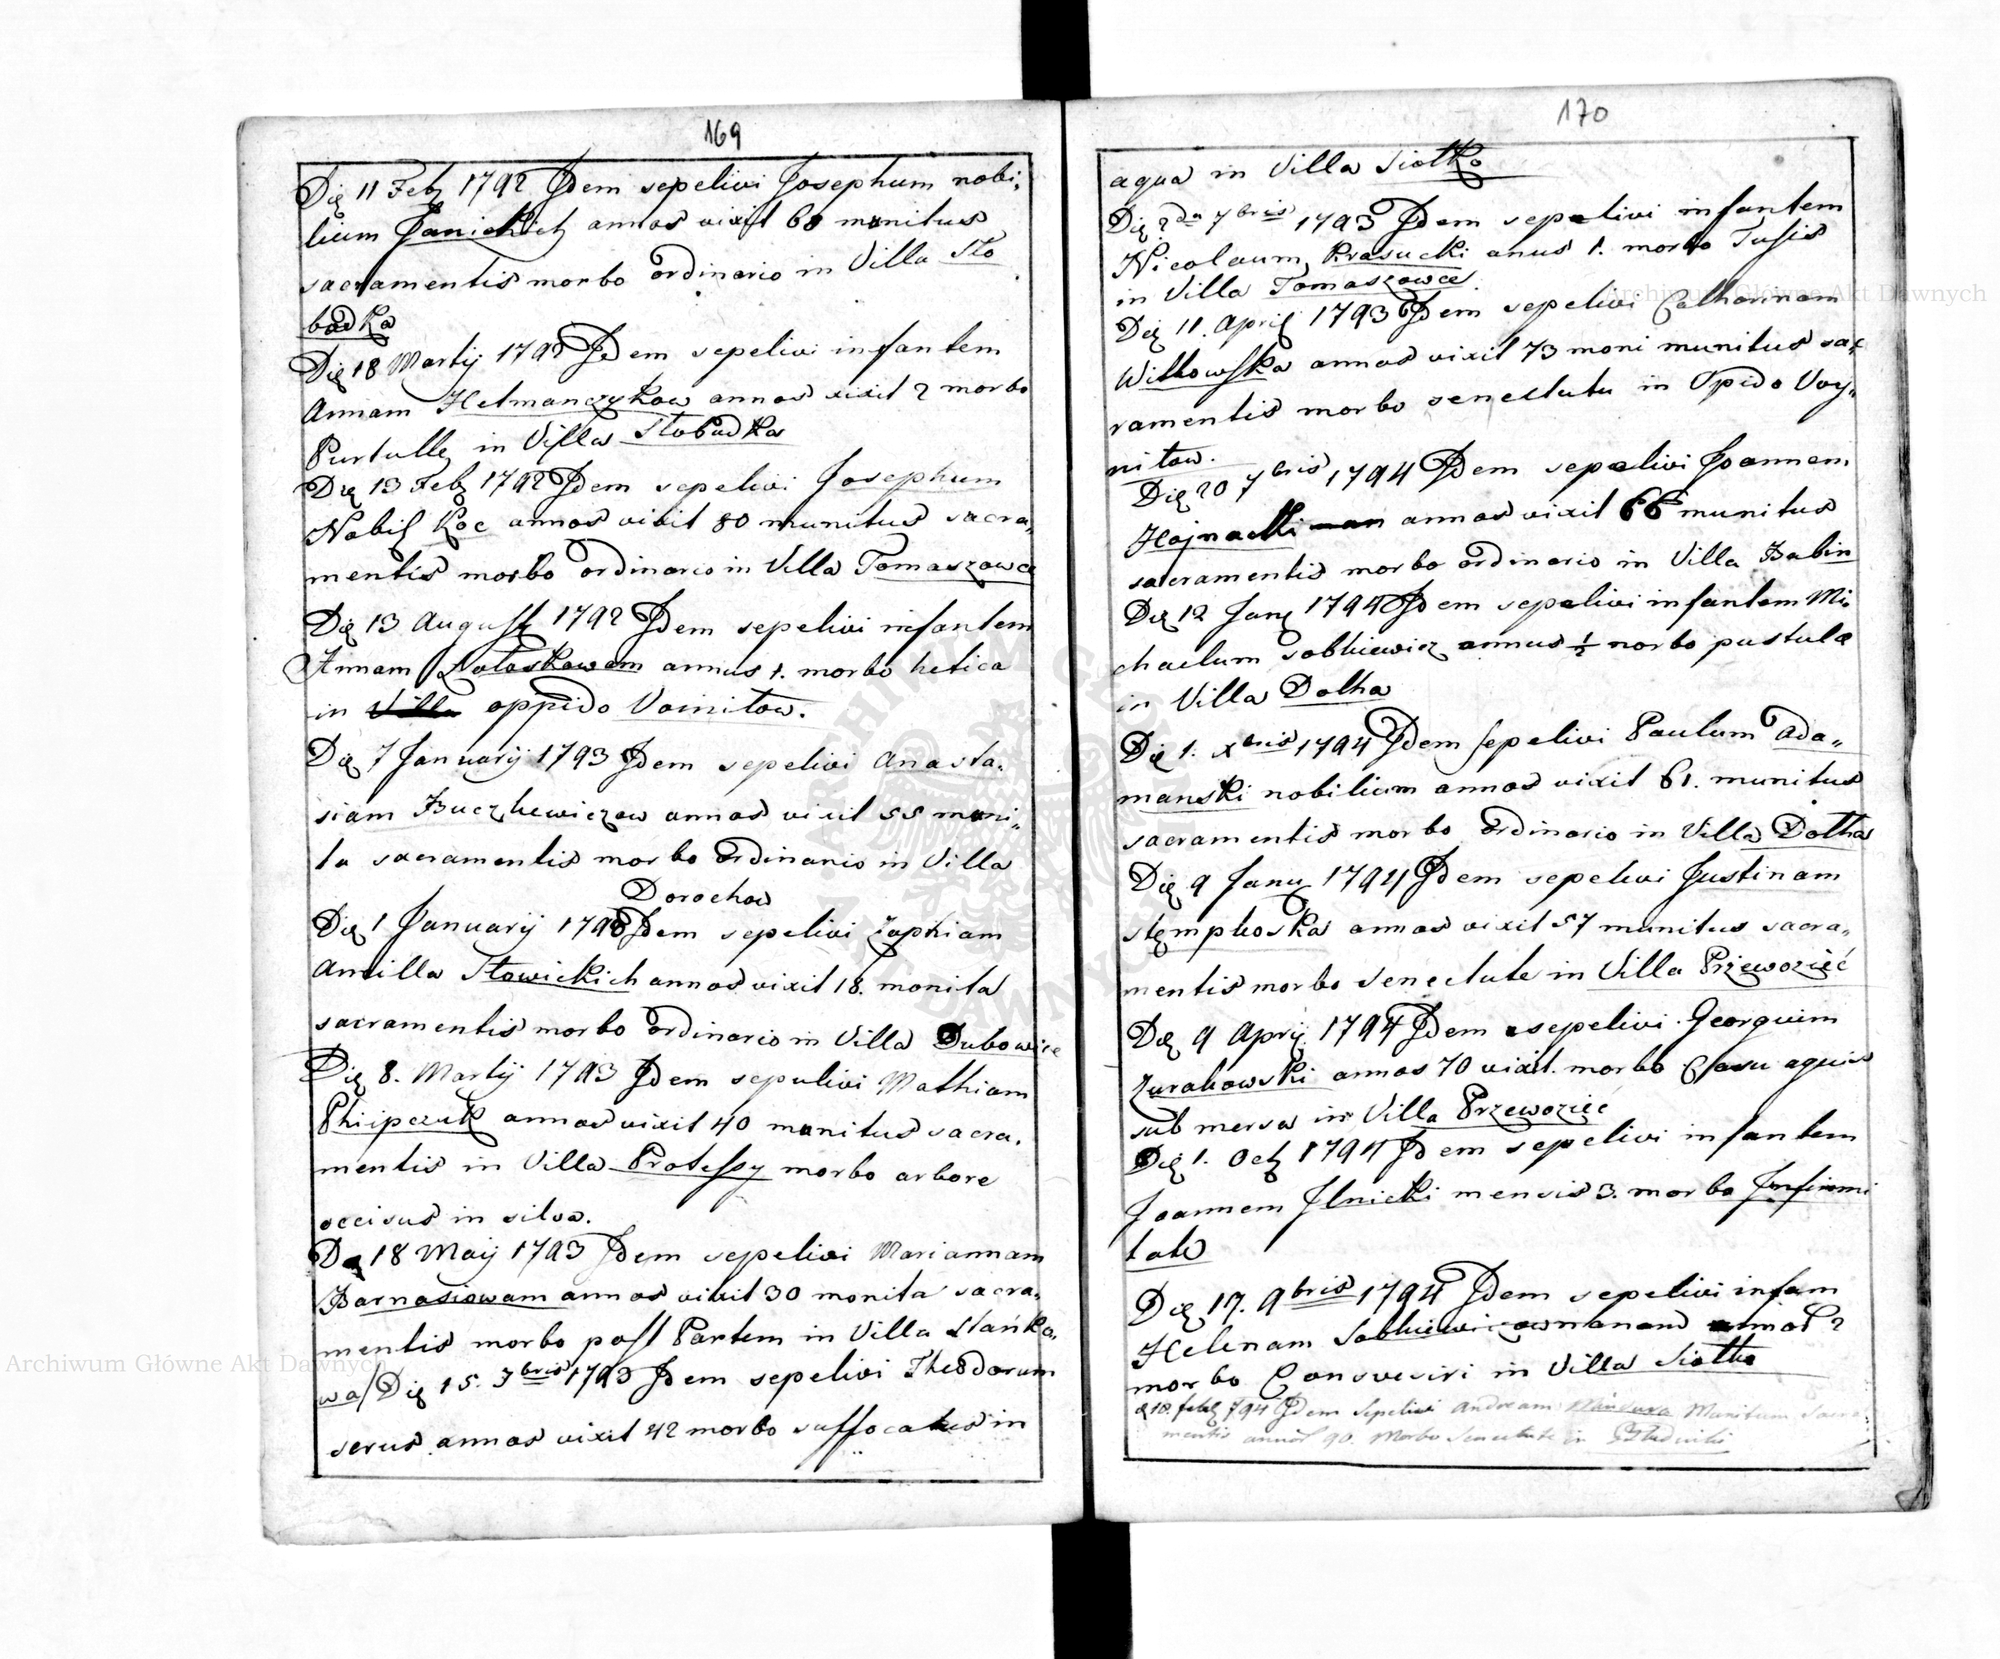 169
Die 11 Feb 1792 Idem sepelivi Josephum nobi,
lium Janickich annos vixit 60 munitus
sacramentis morbo ordinario in Villa Sło
bodka
Die 18 Martij 1792 Idem sepelivi infantem
Annam Hetmanczykow annos vixit 2 morbo
Purtulle in Villa Słobudka
Die 13 Feb 1792 Idem sepelivi Josephum
Nobil Koc annos vixit 80 munitus sacra,
mentis morbo ordinario in Villa Tomaszowce
Die 13 August 1792 Idem sepelivi infantem
Annam annus 1. morbo hetica
in Villa oppido Voinitow.
Die 7 Januarij 1793 Idem sepelivi Anasta,
siam Buczkewiczow annos vixit 55 muni,,
ta sacramentis morbo ordinario in Villa
Dorochow
Die 1 Januarij 1793 Idem sepelivi Zophiam
Ancilla Słowickich annos vixit 18. monita
sacramentis morbo ordinario in Villa Dubowice
Die 8. Martij 1793 Idem sepulivi Mathiam
Phiipczuk annos vixit 40 munitus sacra,
mentis in Villa Protessy morbo arbore
occisus in silva.
Die 18 Maij 1793 Idem sepelivi Mariannam
Barnasiowam annos vixit 30 monita sacra,
mentis morbo post Partem in Villa Stańko,
wa/ Die 15. 7bris 1793 Idem sepelivi Theodorum
serus annos vixit 42 morbo suffocatus in
170
aqua in Villa Siołko
Die 2da 7bris 1793 Idem sepelivi infantem
Nicolaum Krasucki anus 1. morbo Tusis
in Villa Tomaszowce
Die 11. April 1793 Idem sepelivi Catharinam
Witkowska annos vixit 73 moni munitus sac,
ramentis morbo senectutu in Opido Voy,,
nitow.
Die 20 7bris 1794 Idem sepelivi Joannem
Hojnacki annos vixit 66 munitus
sacramentis morbo ordinario in Villa Babin
Die 12 Jan 1794 Idem sepelivi infantem Mi,
chaelum Sobkiewicz annus ½ morbo pustula
in Villa Dołha
Die 1. Xbris 1794 Idem sepelivi Paulum Ada,,
manski nobilium annos vixit 61. munitus
sacramentis morbo ordinario in Villa Dołha
Die 9 Janu 1794 Idem sepelivi Justinam
Stęmpkoska annos vixit 57 munitus sacra,,
mentis morbo senectute in Villa Przewozieć
Die 9 Aprij 1794 Idem sepelivi Georguim
Zurakowski annos 70 vixit. morbo Casu aquis
sub mersa in Villa Przewozieć
Die 1. Oct 1794 Idem sepelivi infantem
Joannem Ilnicki mensis 3. morbo Infirmi
tate
Die 17. 9bris 1794 Idem sepelivi infam
Helenam annos 2
morbo in Villa Siołko
d 18. febr 794 Idem Sepelivi Andream Munitum Sacra
mentis annos 90. Morbo Senectute in